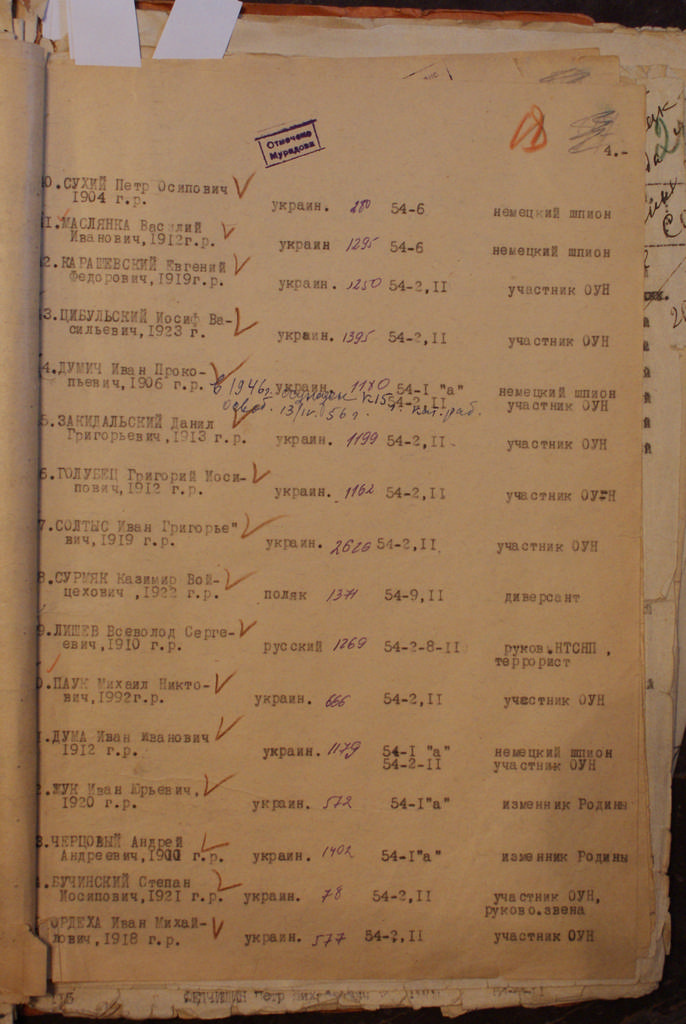 Отмечено
Мурадова
4.-
0.СУХИЙ Петр Осипович
1904 г.р. украин. 280 54-6 немецкий шпион
1.МАСЛЯНКА Василий
Иванович,1912г.р. украин 1295 54-6 немецкий шпион
2.КАРАШЕВСКИЙ Евгений
Федорович,1919г.р. украин. 1250 54-2,II участник ОУН
3.ЦИБУЛЬСКИЙ Иосиф Ва-
сильевич,1923 г. украин. 1395 54-2,II участник ОУН
4.ДУМИЧ Иван Проко-
пьевич,1906 г.р. украин. 1170 54-I "а" немецкий шпион
54-2,II участник ОУН
в 1946г. осужден к 15 г. кат. раб.
освоб. 13/IV-56г.
5.ЗАКИДАЛЬСКИЙ Данил
Григорьевич,1913 г.р. украин. 1199 54-2,II участник ОУН
6.ГОЛУБЕЦ Григорий Иоси-
пович,1912 г.р. украин. 1162 54-2,II участник ОУН
7.СОЛТЫС Иван Григорье"
вич,1919 г.р. украин. 2620 54-2,II участник ОУН
8.СУРМЯК Казимир Вой-
цехович ,1922 г.р. поляк 1371 54-9,II диверсант
9.ЛИШЕВ Всеволод Серге-
евич,1910 г.р. русский 1269 54-2-8-II руков.НТСНП ,
террорист
0.ПАУК Михаил Никто-
вич,1992г.р. украин. 666 54-2,II участник ОУН
1.ДУМА Иван Иванович
1912 г.р. украин. 1179 54-I "а" немецкий шпион
54-2-II участник ОУН
2.ЖУК Иван Юрьевич,
1920 г.р. украин. 572 54-I"а" изменник Родины
3.ЧЕРЦОВЫЙ Андрей
Андреевич,1900 г.р. украин. 1402 54-I"а" изменник Родины
.БУЧИНСКИЙ Степан
Иосипович,1921 г.р. украин. 78 54-2,II участник ОУН,
руково.звена
ОРДЕХА Иван Михай-
лович,1918 г.р. украин. 577 54-2,II участник ОУН